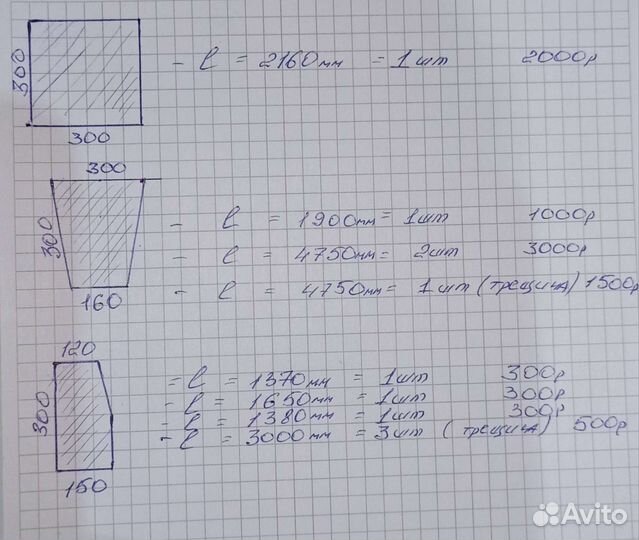 300 - l = 2160мм = 1шт 2000р
300
300
300 - l = 1900мм = 1шт 1000р
- l = 4750мм = 2шт 3000р
160 - l = 4750мм = 1шт (трещина) 1500р
120
300 = l = 1370мм = 1шт 300р
- l = 1650мм = 1шт 300р
- l = 1380мм = 1шт 300р
- l = 3000мм = 3шт (трещина) 500р
150
Avito